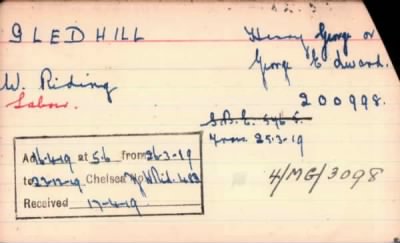 GLEDHILL
Henry George or
George Edward.
W. Riding
Labour.
200998.
S.B.E. 546 S.
From 25.3.19
Ad 16-4-19 at 5/6 from 26-3-19
to 23-12-19 Chelsea No
Received 17-4-19
4/MG/3098